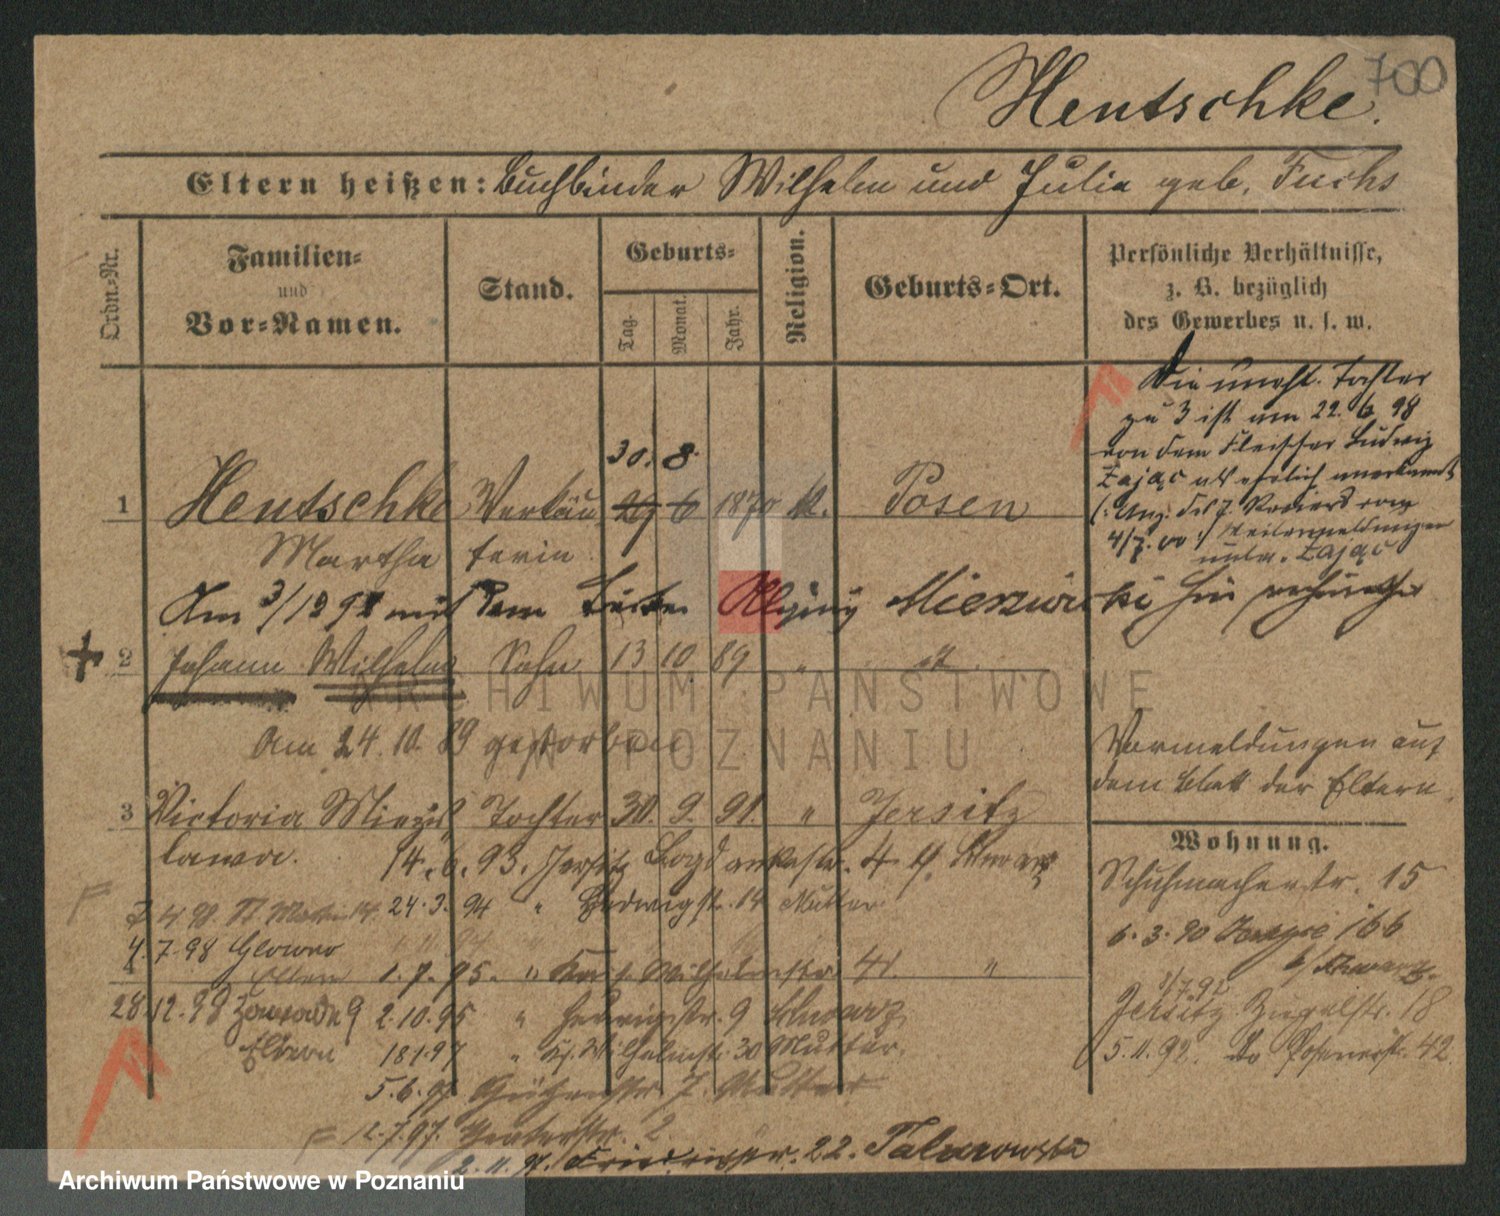 700
Hentschke.
Eltern heißen: Buchbinder Wilhelm und Julia geb. Fuchs
Ordn.-Nr.
Familien-
und
Vor-Namen.
Stand.
Geburts-
Tag.
Monat.
Jahr.
Religion.
Geburts-Ort.
Persönliche Verhältnisse,
z. B. bezüglich
des Gewerbes u. s. w.
Die unehl. Tochter
zu 3 ist am 22. 6 98
von dem Fleischer Ludwig
Zając als ehelich anerkannt
4/7. 00
unter Zając
30. 8.
1 Hentschke Verkäu 29 6 1870 k. Posen
Martha ferin
Am 3/12 98 mit dem Mierzwicki
2 Johann Wilhelm Sohn 13 10 89 "
Am 24. 10. 89 gestorben
Vormeldungen auf
dem Blatt der Eltern.
3 Victoria Mieczys Tochter 30. 9. 91. " Jersitz
lawa. 14. 6. 93. Jersitz Bogdankastr. 4 b. Schwarz
24. 3. 94 " Hedwigstr. 14 Mutter
4. 7. 98 Glowno
4
Eltern 1. 7. 95. " Wilhelmstr. 41. "
28. 12. 98 Zawade 9 2. 10. 95 " Hedwigstr. 9 Schwarz
Eltern 18 1. 97 " Wilhelmstr. 30 Mutter.
5. 6. 97 7. Mutter
12. 7. 97. 2
2. 11. 97. Friedrichstr. 22. Talarowska
Wohnung.
Schuhmacherstr. 15
6. 3. 90 166
b/ Schwarz.
1/7. 92
Jersitz 18
5. 11. 92. do Posenerstr. 42.
ARCHIWUM PAŃSTWOWE
W POZNANIU
Archiwum Państwowe w Poznaniu